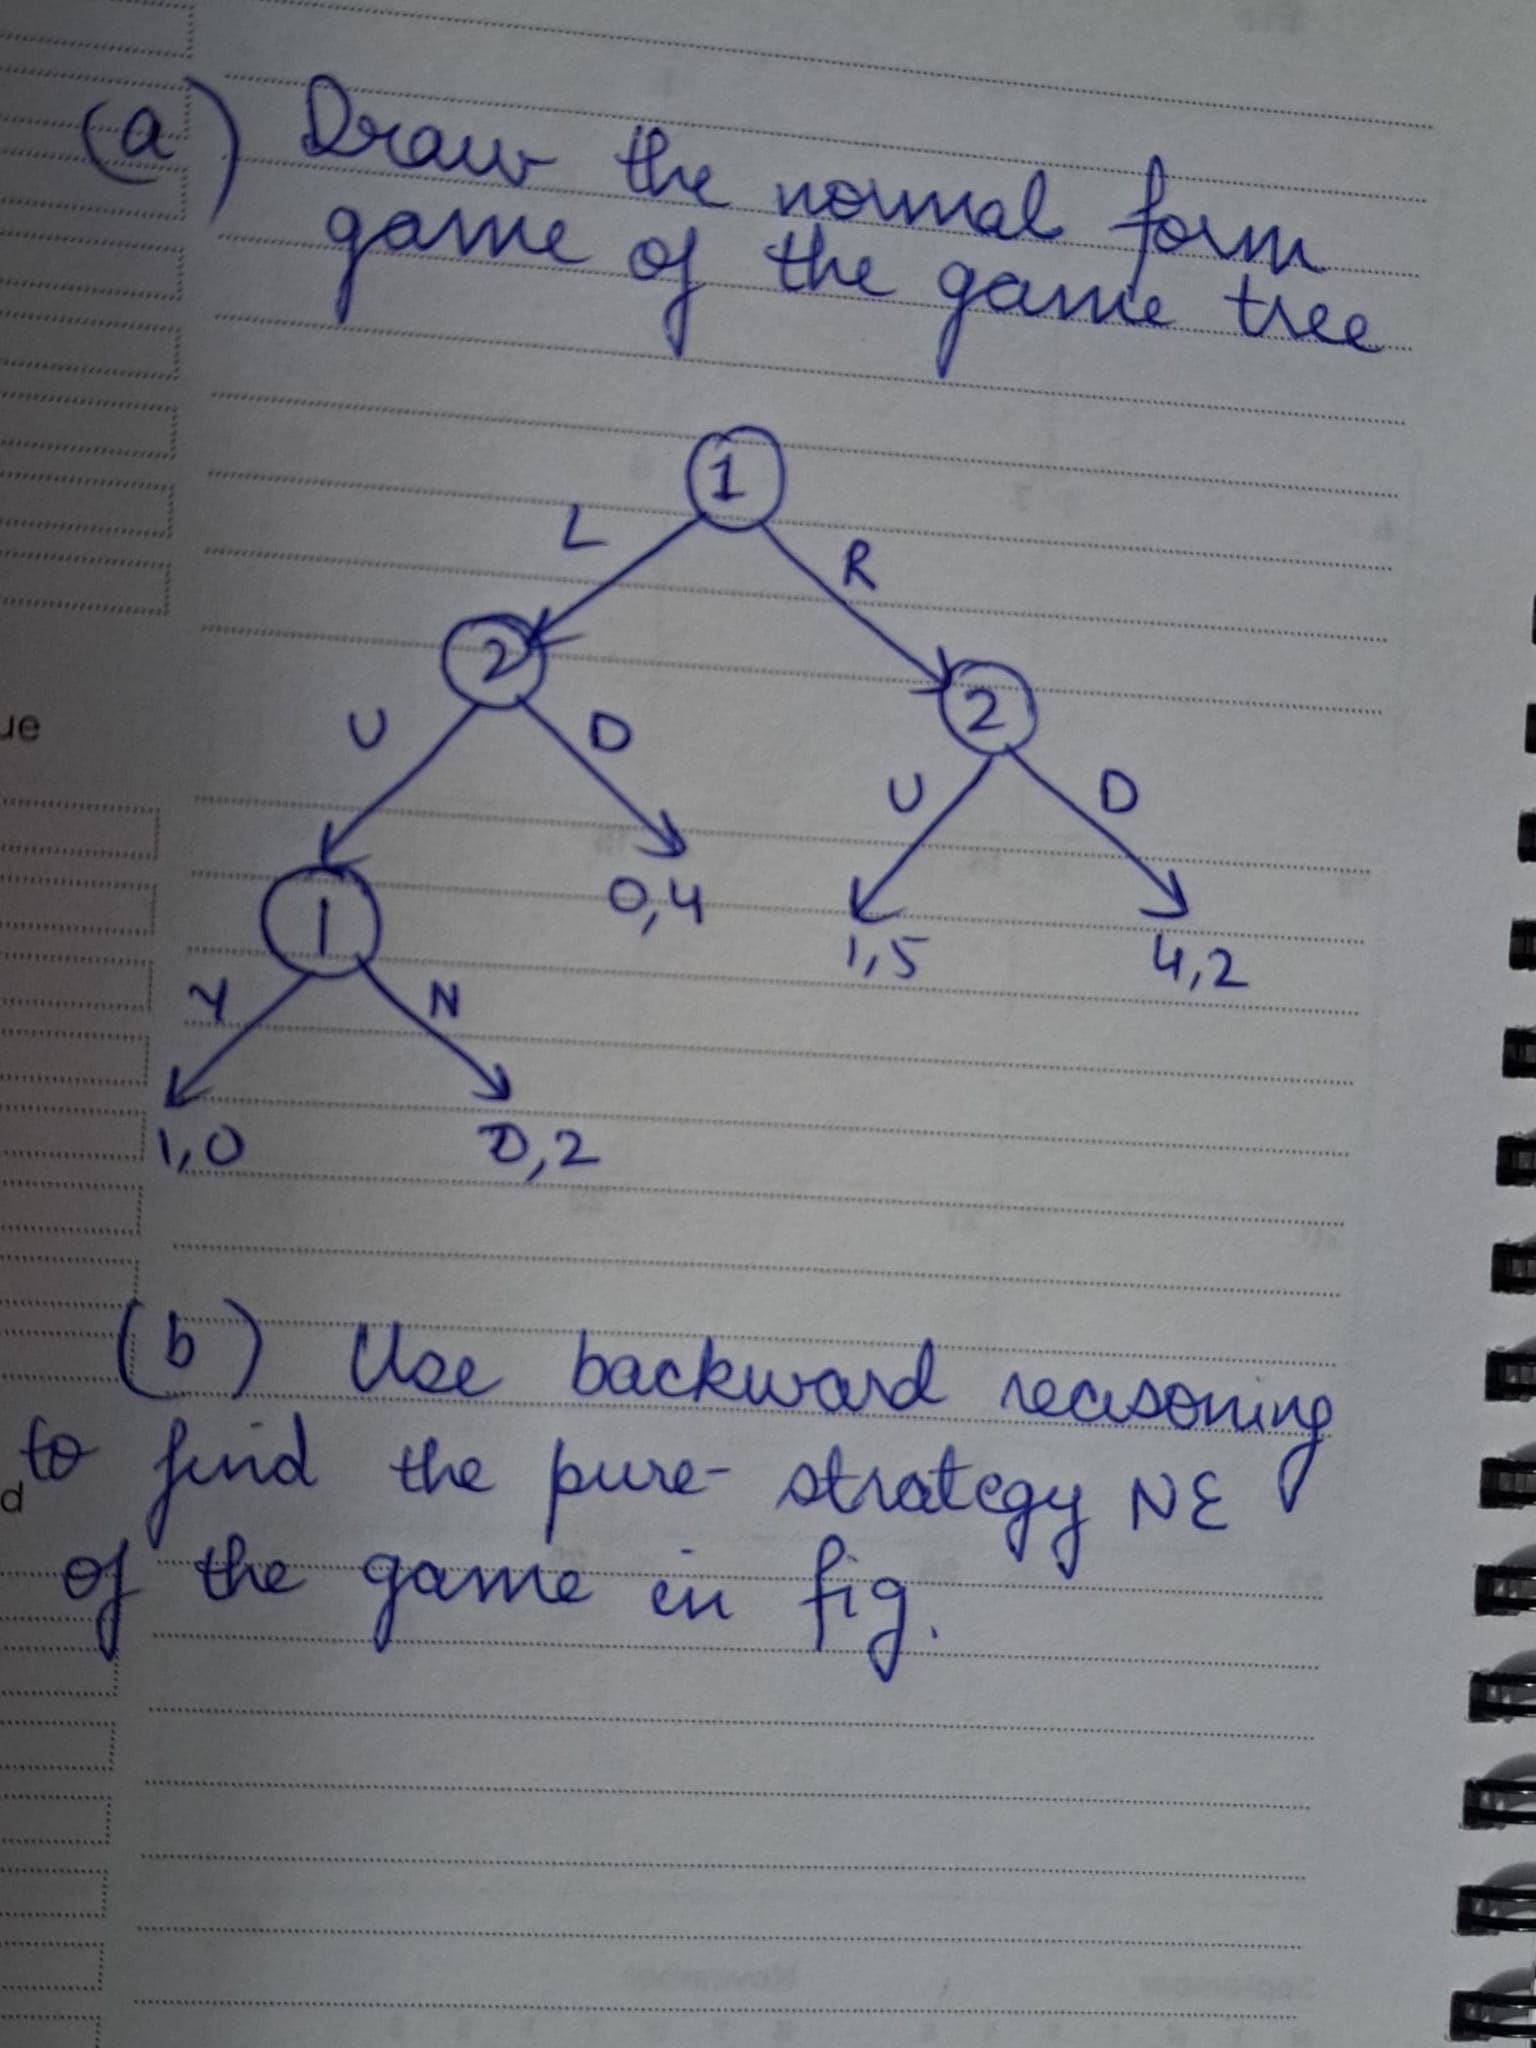 (a) Draw the normal form
game of the game tree
1
L
R
2
2
U
D
U
D
1
0,4
1,5
4,2
Y
N
1,0
0,2
(b) Use backward reasoning
to find the pure- strategy NE
of the game in fig.
ue
d